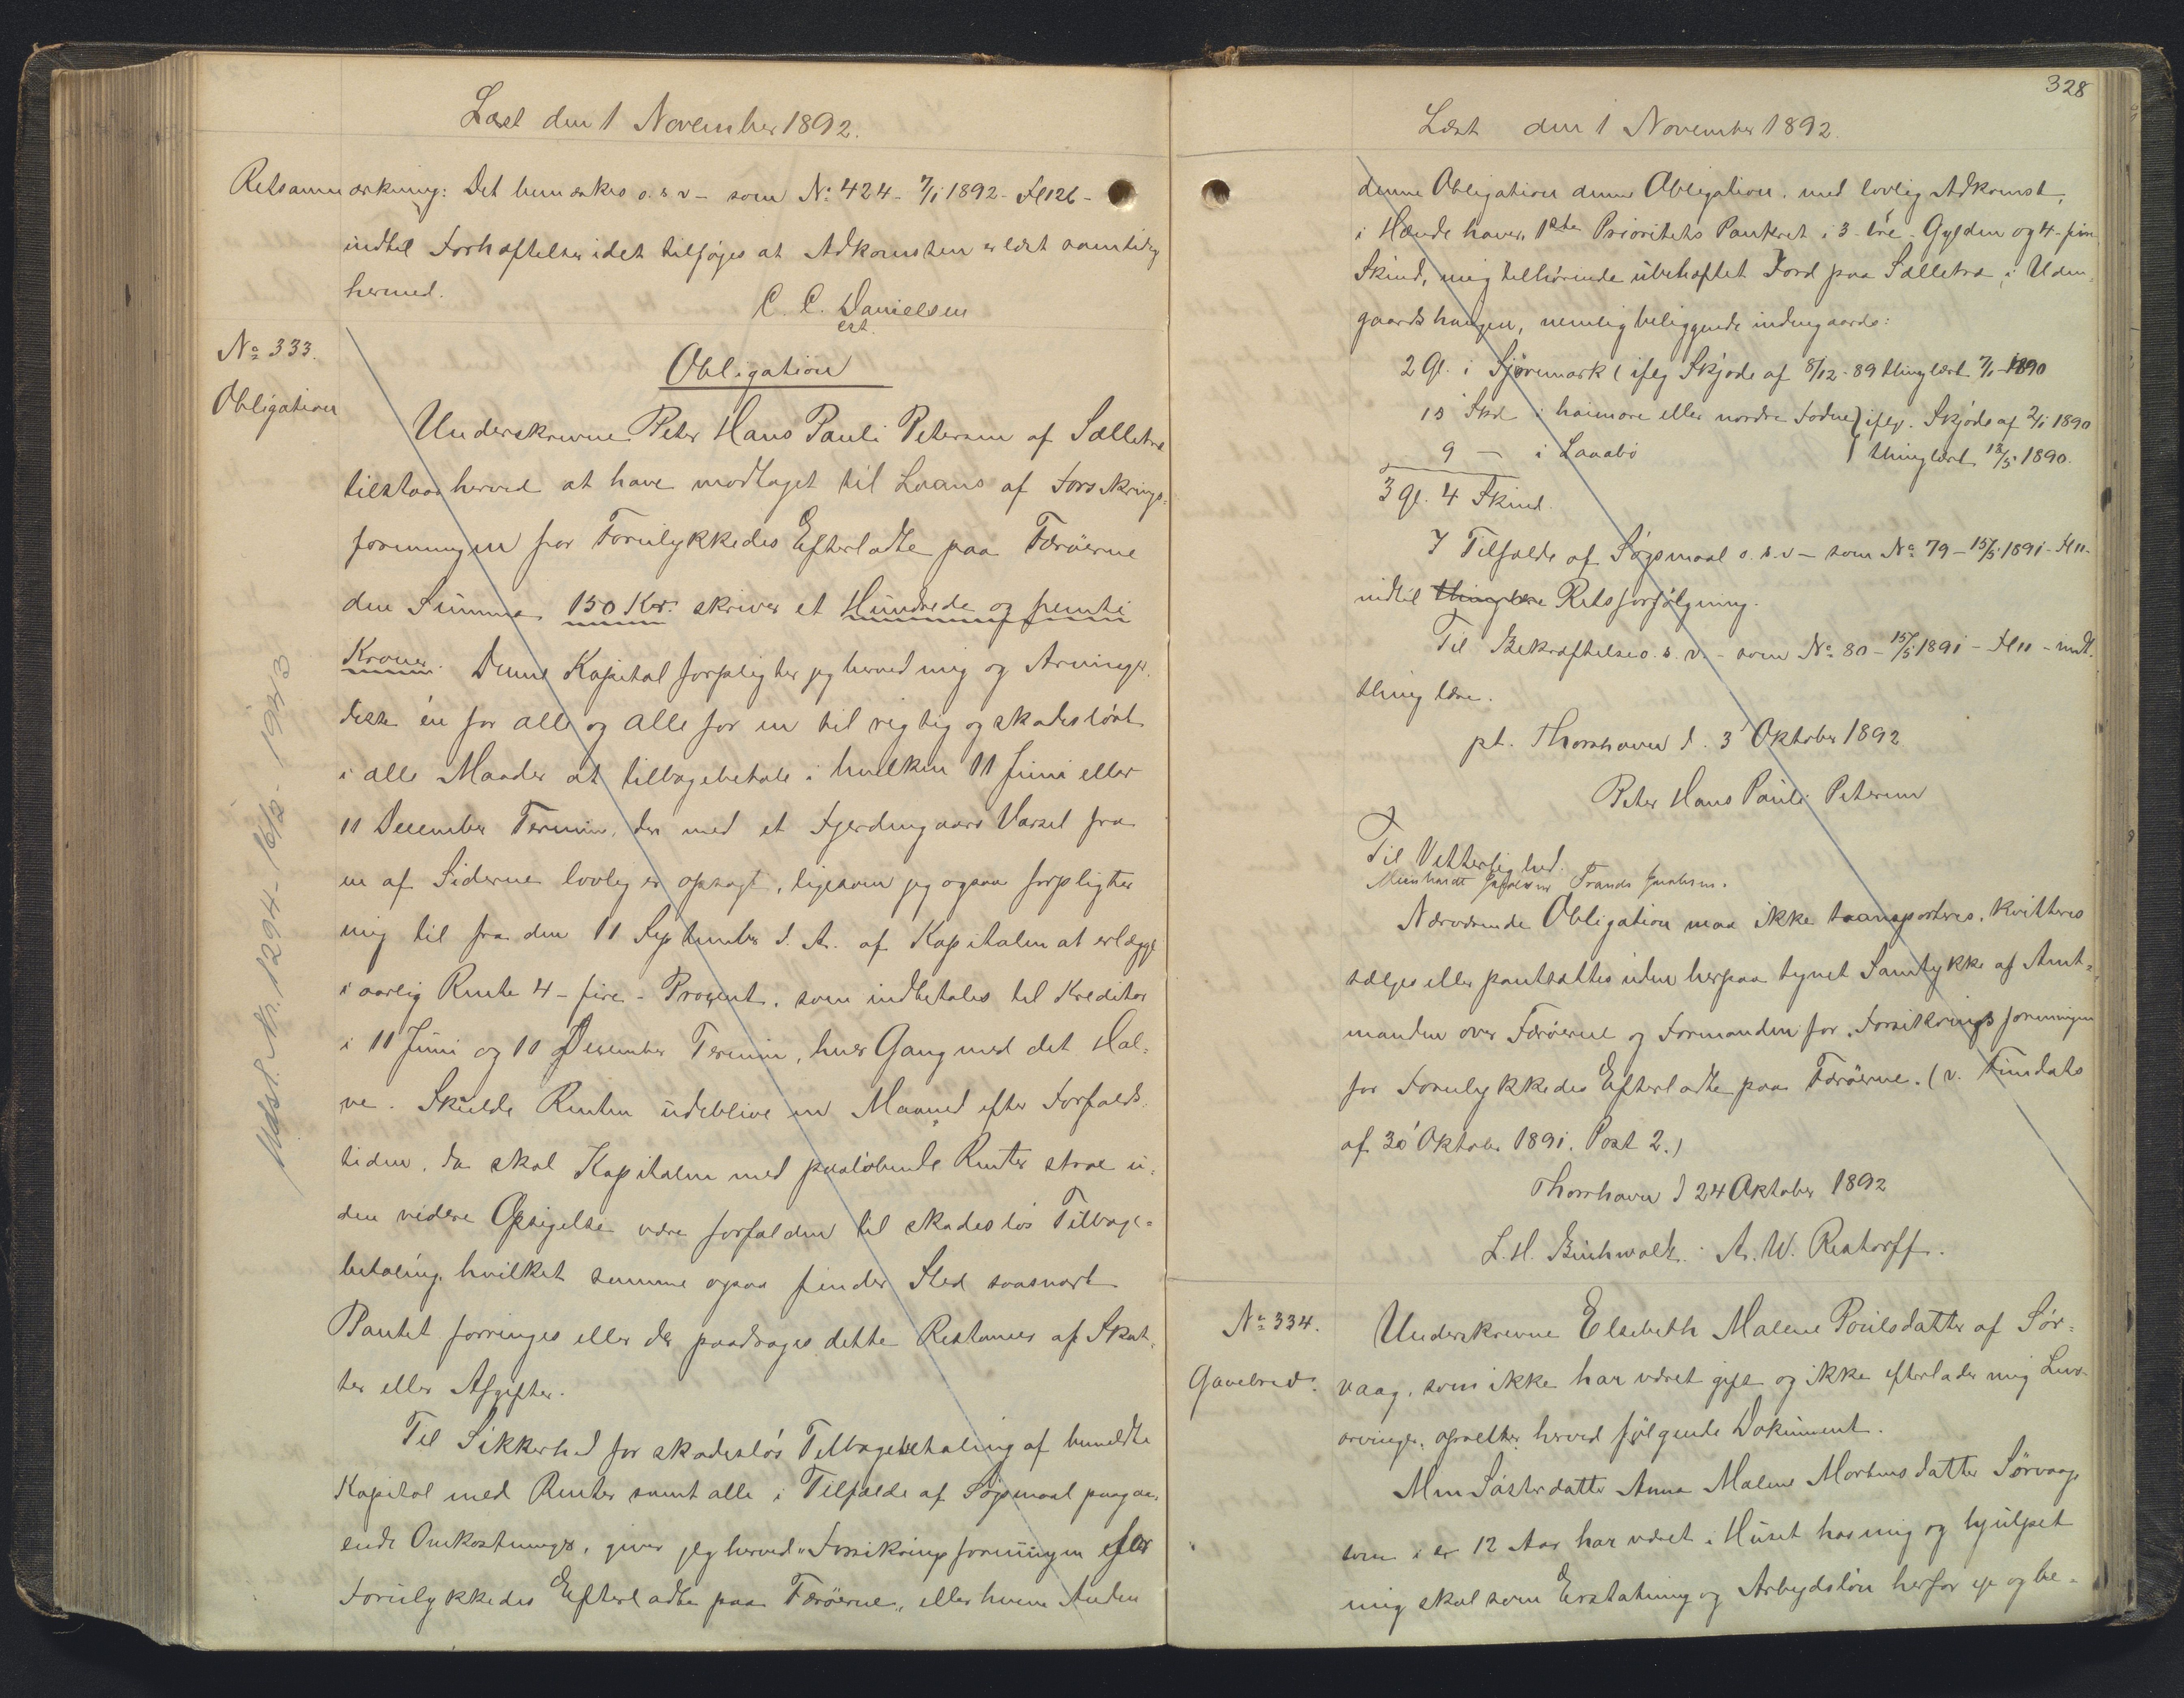 Læst den 1 November 1892.
Retsanmærkning: Det bemærkes o.s.v – som No 424 - 7/1 1892 - Fl 126 -
indtil Forhæftelser idet tilføjes at Adkomsten er læst samtidig
hermed.
C. C. Danielsen
cst.
No 333.
Obligation
Obligation
Underskrevne Peter Hans Pauli Petersen af Selletræ
tilstaar herved at have modtaget til Laans af Forsikrings-
foreningen for Forulykkedes Efterladte paa Færøerne
den Summa 150 Kr. skriver et Hundrede og femti
Kroner. Denne Kapital forpligter jeg herved mig og Arvinger
disse én for alle og alle for en til rigtig og skadesløst
i alle Maader at tilbagebetale i hvilken 11 Juni eller
11 December Termin, der med et Fjerdingaars Varsel fra
en af Siderne lovlig er opsagt, ligesom jeg ogsaa forpligter
mig til fra den 11 September d. A. af Kapitalen at erlægge
i aarlig Rente 4 - fire - Procent, som indbetales til Kreditor
i 11 Juni og 11 December Termin, hver Gang med det Hal-
ve. Skulde Renten udeblive en Maaned efter Forfalds
tiden, da skal Kapitalen med paaløbende Renter strax u-
den videre Opsigelse være forfalden til skadesløs Tilbage-
betaling, hvilket samme ogsaa finder Sted saasnart
Pantet forringes eller der paadrages dette Restancer af Skat-
ter eller Afgifter.
Til Sikkerhed for skadesløs Tilbagebetaling af bemeldte
Kapital med Renter samt alle i Tilfælde af Søgsmaal paagaa-
ende Omkostninger, giver jeg herved "Forsikringsforeningen for
Forulykkedes Efterladte paa Færøerne", eller hvem Anden
Udsl. Nr. 1294 - 16/5 - 1943
328
Læst den 1 November 1892.
denne Obligation denne Obligation, med lovlig Adkomst,
i Hænde haver, 1ste Prioritets Panteret i 3 - tre - Gylden og 4 - fire
Skind, mig tilhørende ubehæftet Jord paa Selletræ, i Uden-
gaards haugen, nemlig beliggende indengaards:
2 Gl. i Sjóvemark (ifølg Skjøde af 8/12 - 89 thinglæst 7/1 - 1890
15 Skd i haimare eller nordre Fodne) ifølg. Skjøde af 2/1 1890
9 — i Laaabø ) thinglæst 13/5 1890.
3 Gl. 4 Skind.
I Tilfælde af Søgsmaal o.s.v – som No 79 - 15/5 1891 - Fl 11 -
indtil thinglæse Retsforfølgning.
Til Bekræftelse o.s.v. - som No 80 - 15/5 1891 - Fl 11 - indt.
thinglæse.
pt. Thorshavn d. 3 Oktober 1892
Peter Hans Pauli Petersen
Til Vitterlighed.
Meinhardt Jacobsen Frands Jacobsen.
Nærværende Obligation maa ikke transporteres, kvitteres
sælges eller pantsættes uden herpaa tegnet Samtykke af Amt-
manden over Færøerne og Formanden for "Forsikringsforeningen
for Forulykkedes Efterladte paa Færøerne. (v. Fundats
af 30 Oktober 1891. Post 2.)
Thorshavn d 24 Oktober 1892
L. H. Buchwaldt. A. W. Restorff.
No 334.
Gavebrev.
Underskrevne Elsebeth Malene Poulsdatter af Sør-
vaag, som ikke har været gift og ikke efterlader mig Livs-
arvinger, opretter herved følgende Dokument.
Min Søsterdatter Anna Malene Mortensdatter Sørvaag
som i er 12 Aar har været i Huset hos mig og hjulpet
mig skal som Erstatning og Arbejdsløn herfor eje og be-